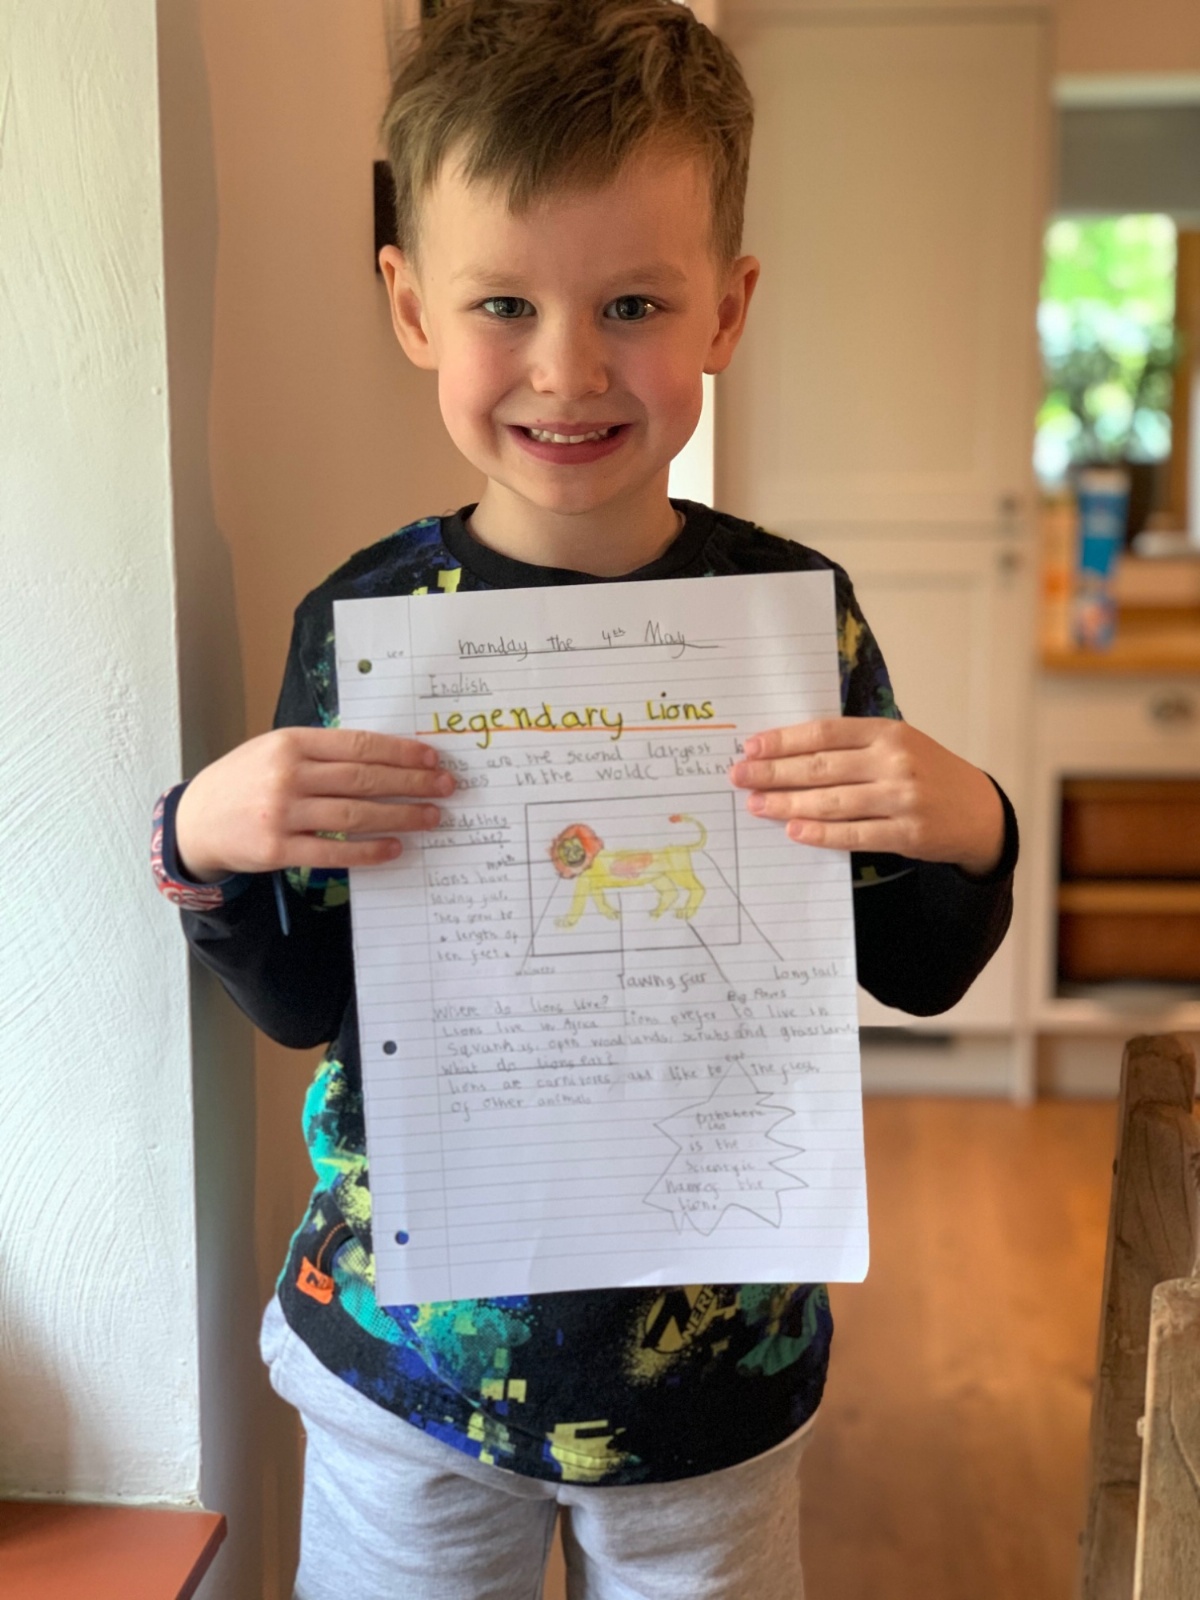 Leo
Monday the 4th May
English
Legendary Lions
are the second largest
in the woldc behind
do they
Look like?
Lions have
They grow to
a length of
ten feet.
Tawny fur
Long tail
Big Paws
Where do lions live?
Lions live in Africa Lions prefer to live in
open woodlands, scrubs and grassland
What do lions eat?
Lions are carnivores and like to eat the flesh
of other animals
is the
name of the
lion.
NERF